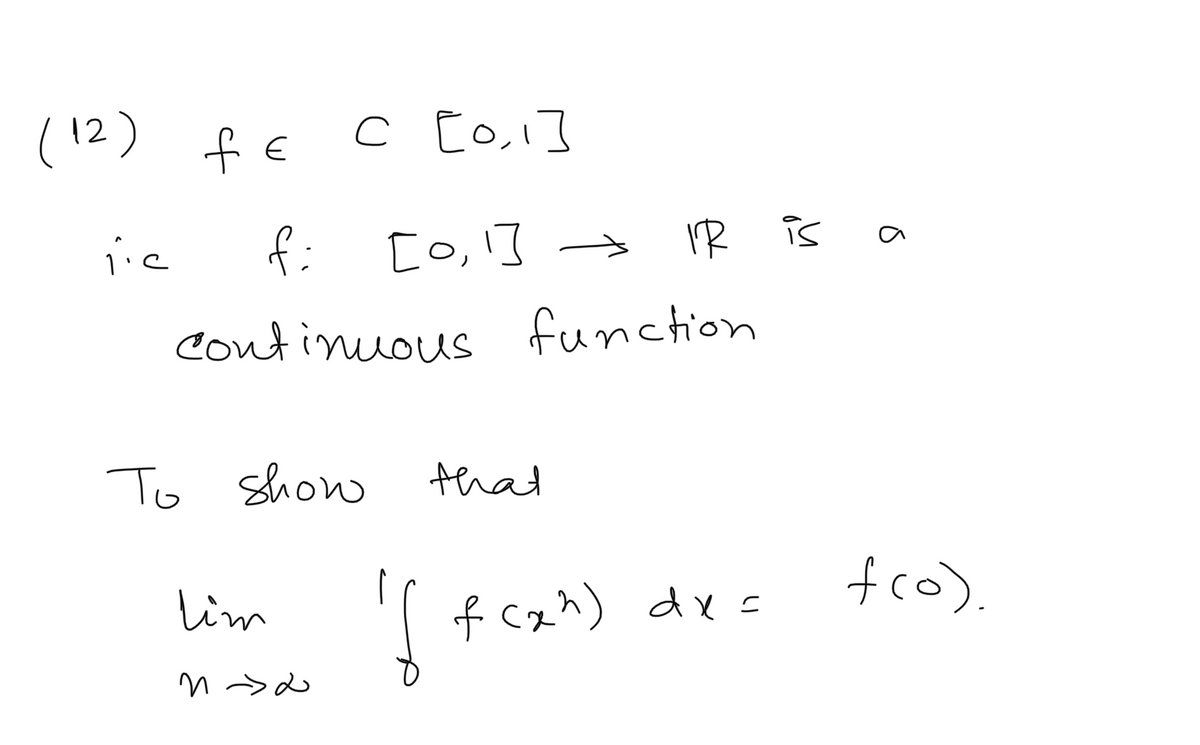 (12) f ∈ C [0,1]
i.e f: [0,1] → ℝ is a
continuous function
To show that
lim ₀∫¹ f(xⁿ) dx = f(0).
n→∞